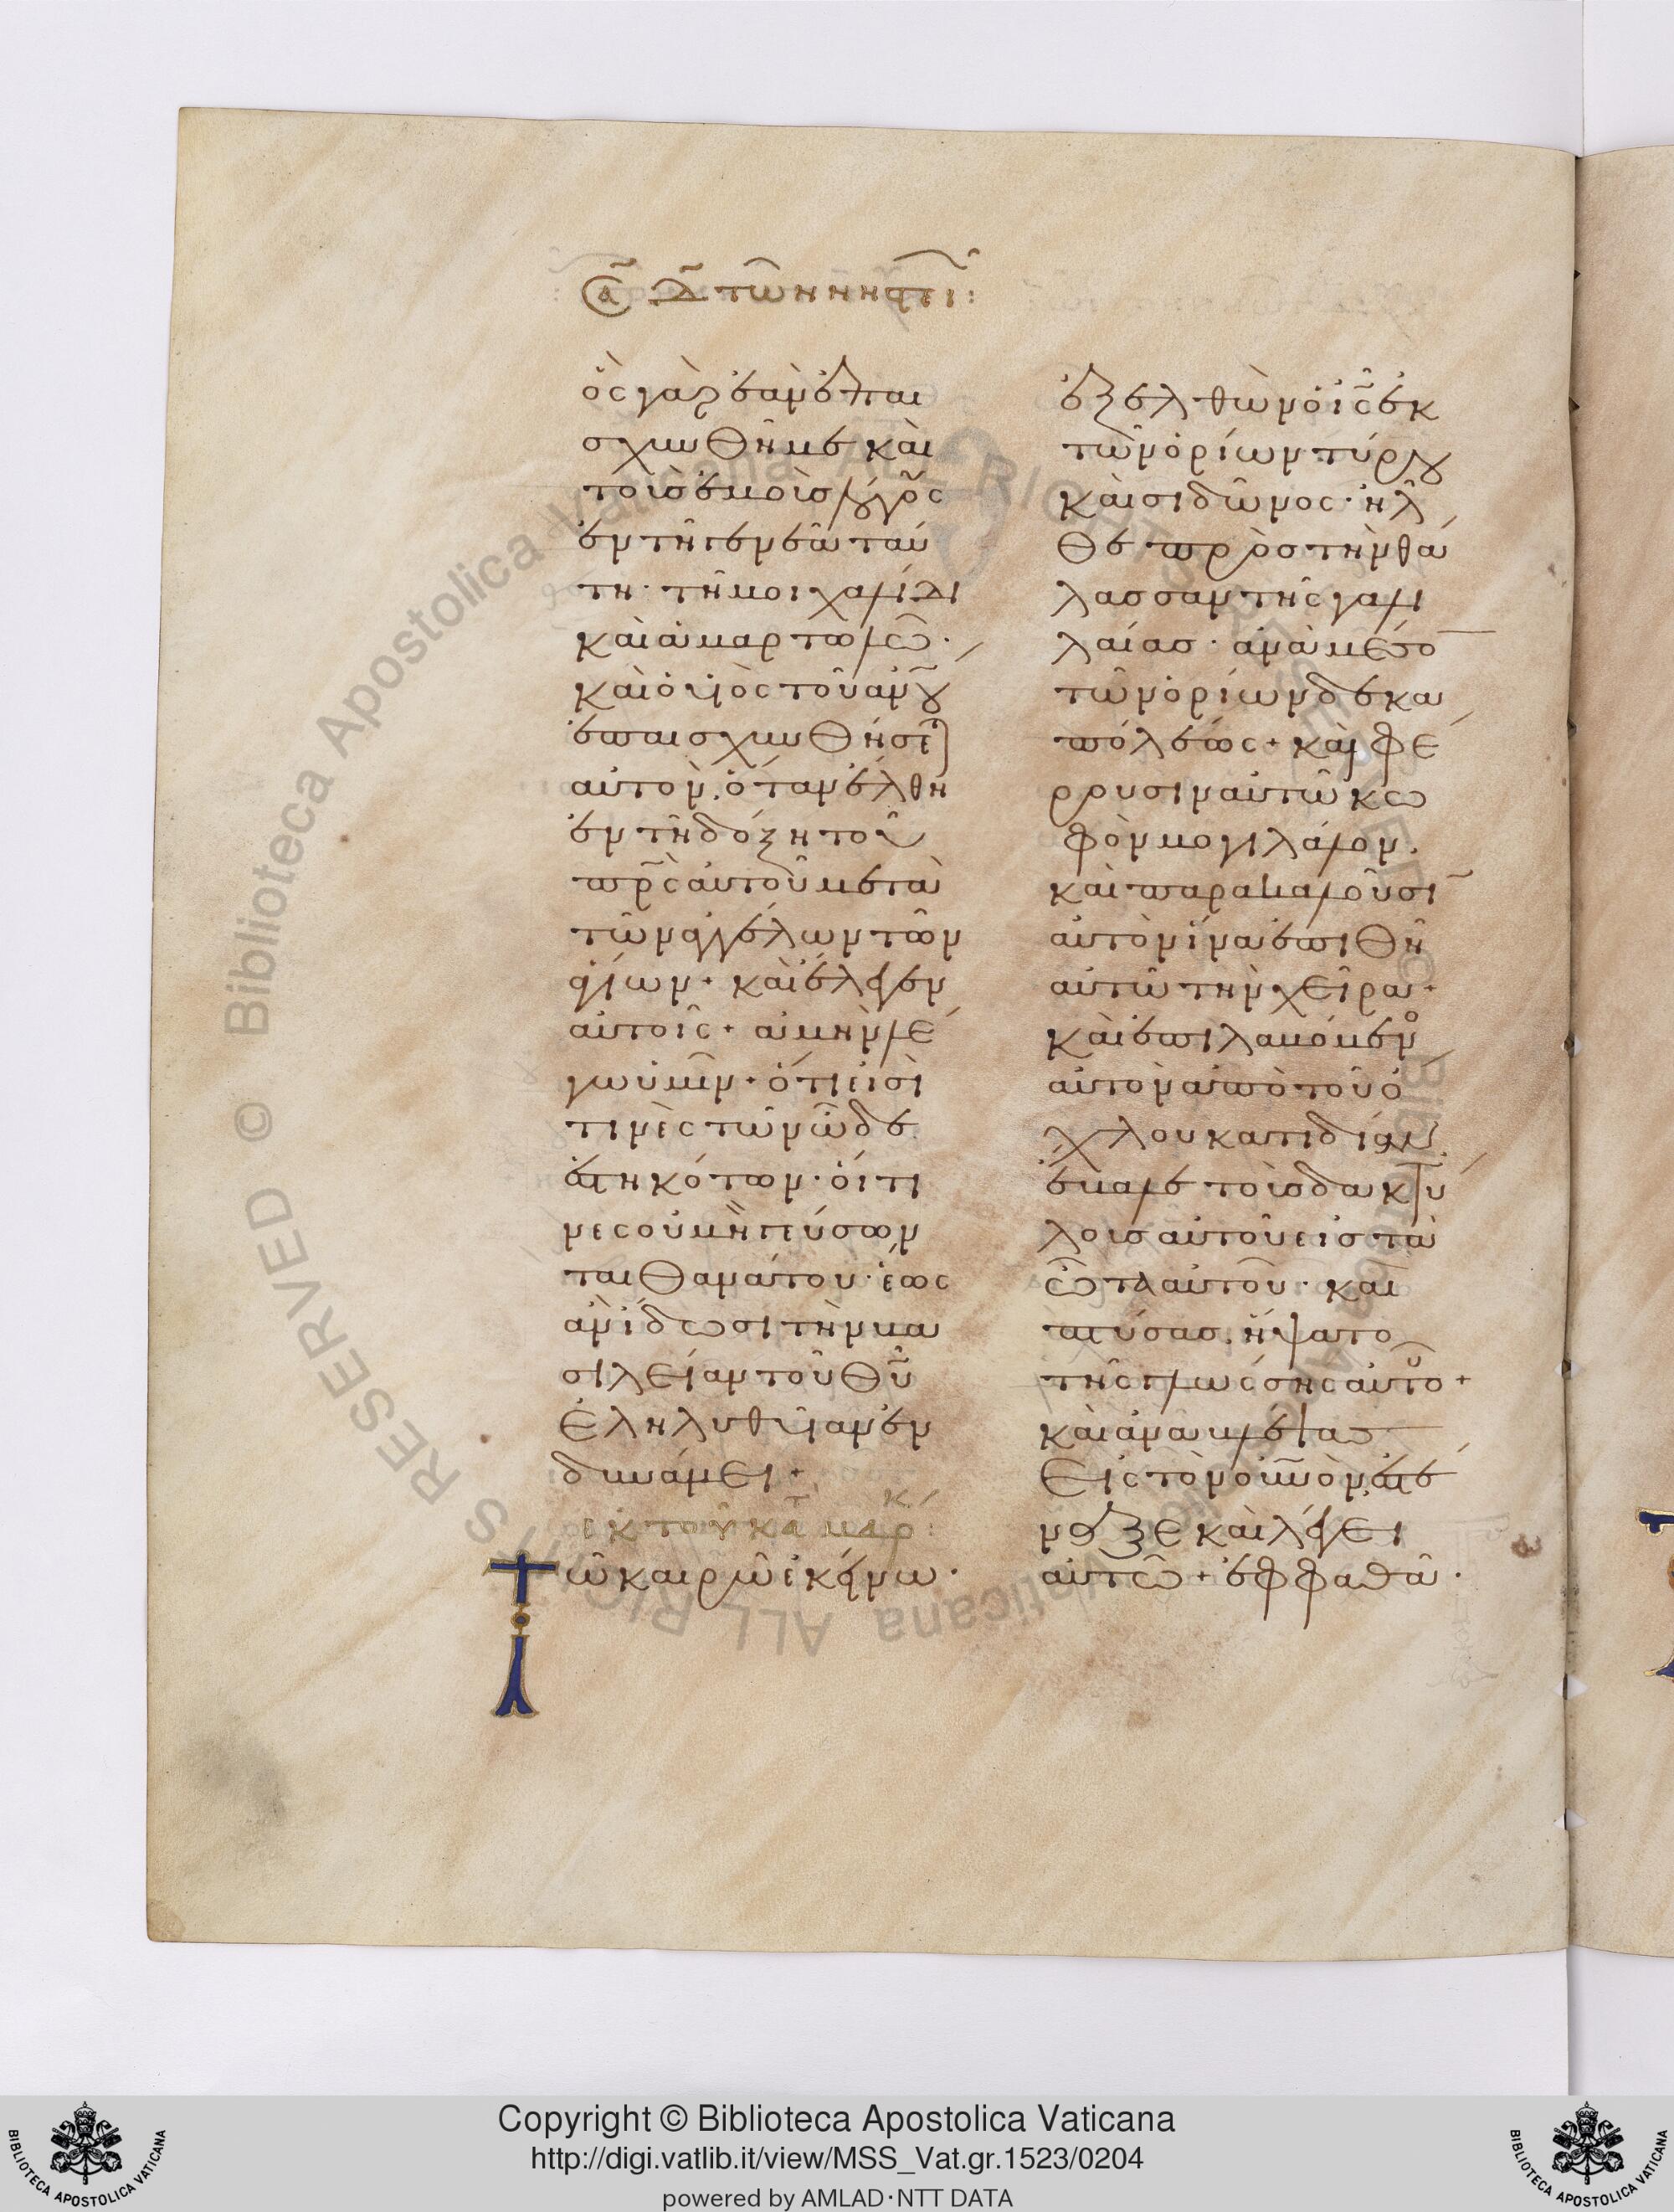 Σα Δ τῶν νηστι:
ὃς γὰρ ἐὰν ἐπαι
σχυνθῆ με καὶ
τοὺσ ἐμοὺσ λόγους
ἐν τῆι γενεᾶ ταύ
τη· τῆ μοιχαλίδι
καὶ ἁμαρτωλῶ·
καὶ ὁ υἱὸς τοῦ ἀνου
ἐπαισχυνθήσεται
αὐτὸν. ὅταν ἔλθη
ἐν τῆ δόξη τοῦ
πρς αὐτοῦ μετὰ
τῶν ἀγγέλων τῶν
ἁγίων + καὶ ἔλεγεν
αὐτοῖς + ἀμὴν λέ
γω ὑμῖν + ὅτι εἰσὶ
τινὲς τῶν ὧδε
ἑστηκότων· οἵτι
νες οὐ μὴ γεύσων
ται θανάτου· ἕως
ἂν ἴδωσι τὴν βα
σιλείαν τοῦ θυ
ἐληλυθυῖαν ἐν
δυνάμει +
ἐκ τοῦ κατὰ μάρκ:
Τῶ καιρῶ ἐκείνω·
ἐξελθὼν ὁ ις ἐκ
τῶν ὁρίων τύρου
καὶ σιδῶνος· ἦλ
θε πρὸσ τὴν θά
λασσαν τῆς γαλι
λαίασ· ἀνὰ μέσον
τῶν ὁρίων δεκα
πόλεως + καὶ φέ
ρουσιν αὐτῶ κω
φὸν μογιλάλον.
καὶ παρακαλοῦσιν
αὐτὸν ἵνα ἐπιθῆ
αὐτῶ τὴν χεῖρα +
καὶ ἐπιλαβόμενος
αὐτὸν ἀπὸ τοῦ ὄ
χλου κατιδίαν
ἔβαλε τοὺσ δακτύ
λουσ αὐτοῦ εἰσ τὰ
ὦτα αὐτοῦ· καὶ
πτύσασ. ἥψατο
τῆς γλώσσης αὐτοῦ +
καὶ ἀναβλέψας
εἰς τὸν οὐνὸν ἐστέ
ναξε καὶ λέγει
αὐτῶ + ἐφφαθά·
Copyright © Biblioteca Apostolica Vaticana
http://digi.vatlib.it/view/MSS_Vat.gr.1523/0204
powered by AMLAD·NTT DATA
BIBLIOTECA APOSTOLICA VATICANA
BIBLIOTECA APOSTOLICA VATICANA
© Biblioteca Apostolica Vaticana ALL RIGHTS RESERVED © Biblioteca Apostolica Vaticana ALL RIGHTS RESERVED